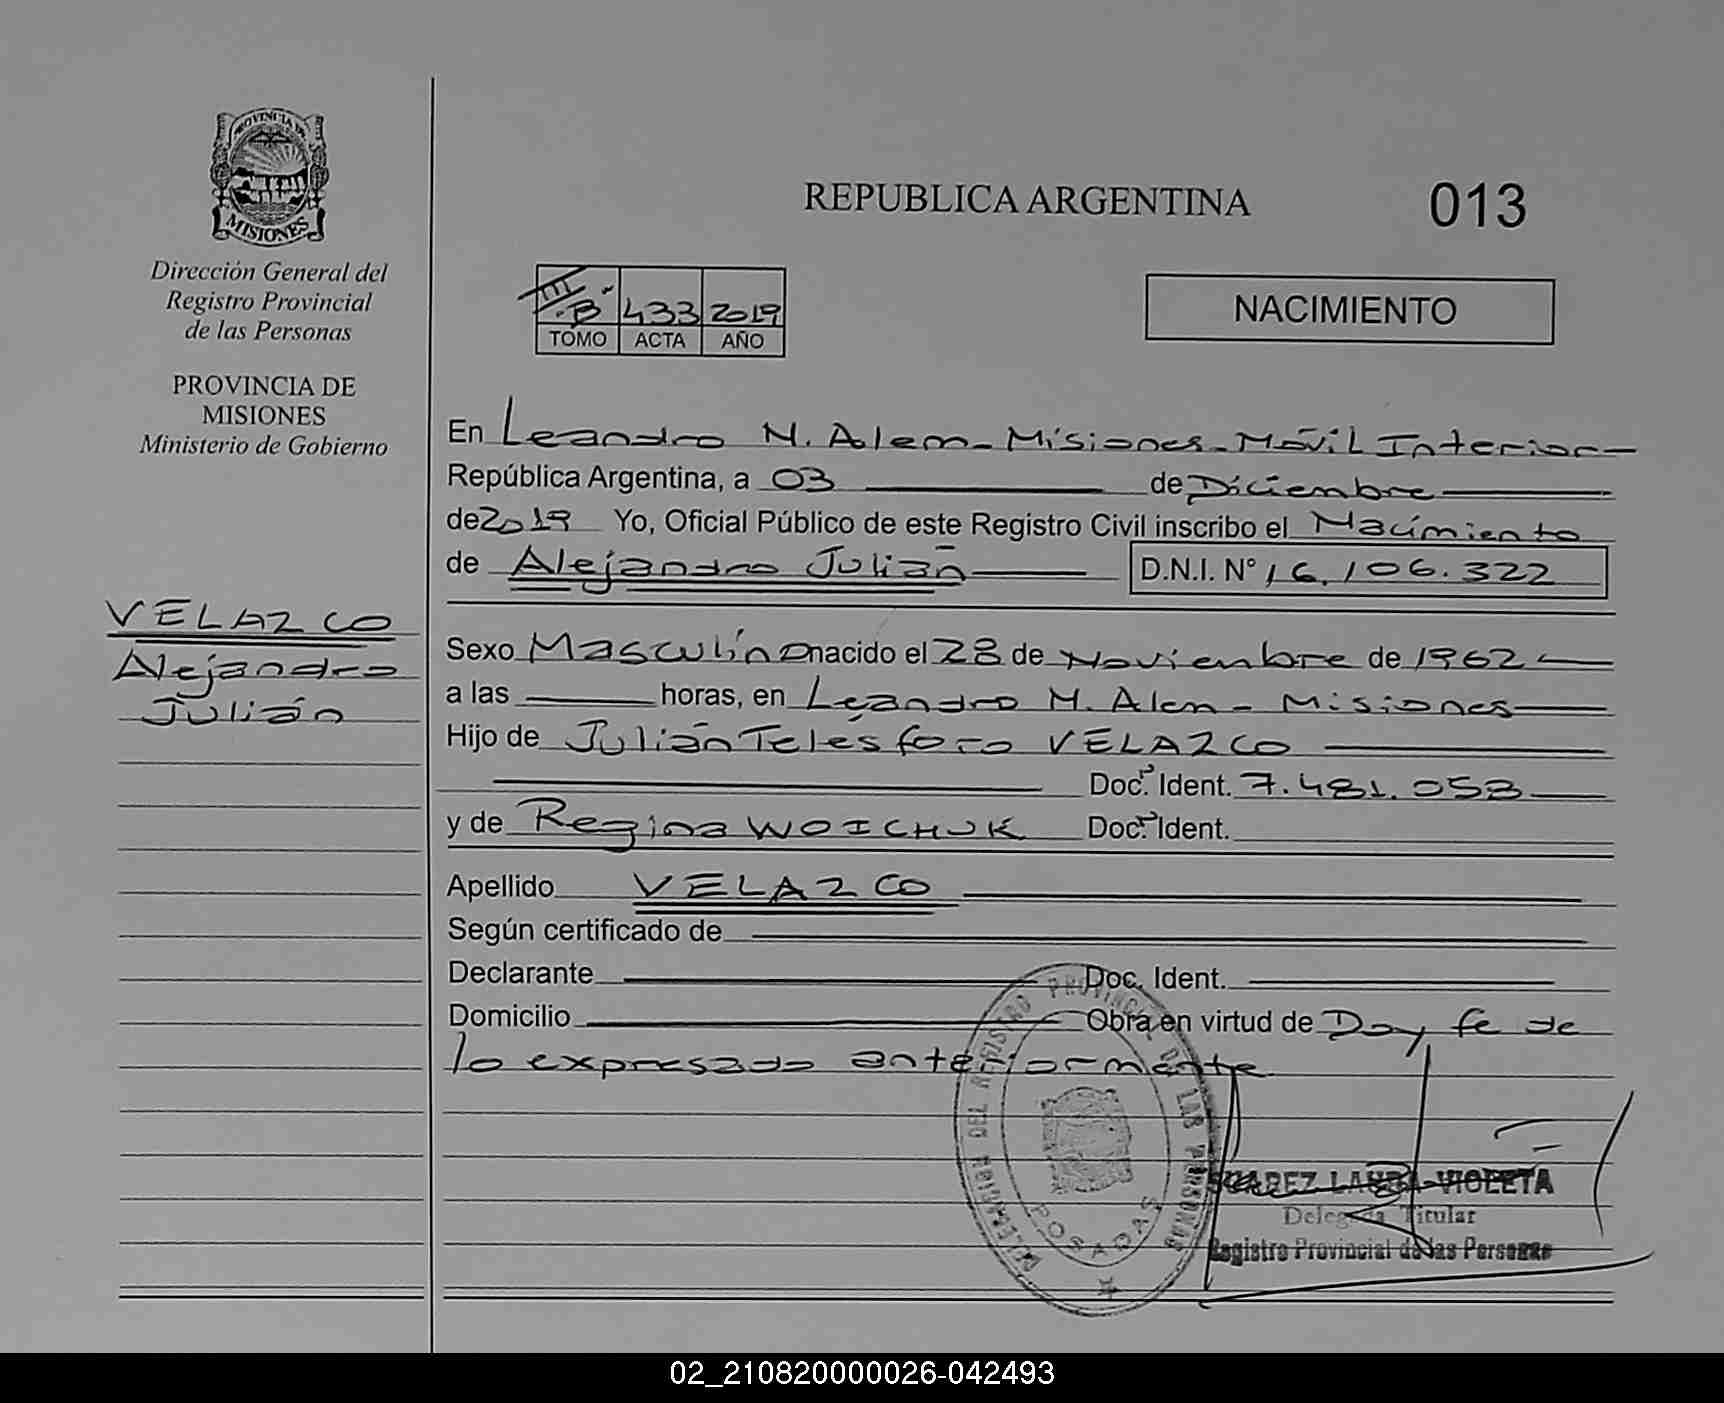 PROVINCIA DE
MISIONES
Dirección General del
Registro Provincial
de las Personas
PROVINCIA DE
MISIONES
Ministerio de Gobierno
VELAZCO
Alejandro
Julián
REPUBLICA ARGENTINA
013
III B 433 2019
TOMO ACTA AÑO
NACIMIENTO
En Leandro N. Alem - Misiones - Móvil Interior
República Argentina, a 03 de Diciembre
de 2019 Yo, Oficial Público de este Registro Civil inscribo el Nacimiento
de Alejandro Julián D.N.I. N° 16.106.322
Sexo Masculino nacido el 28 de Noviembre de 1962
a las horas, en Leandro N. Alem - Misiones
Hijo de Julián Telesforo VELAZCO
Doc. Ident. 7.481.058
y de Regina WOICHUK Doc. Ident.
Apellido VELAZCO
Según certificado de
Declarante Doc. Ident.
Domicilio Obra en virtud de Doy fe de
lo expresado anteriormente
DELEGACION DEL REGISTRO PROVINCIAL DE LAS PERSONAS
POSADAS
SUAREZ LAURA VIOLETA
Delegada Titular
Registro Provincial de las Personas
02_210820000026-042493